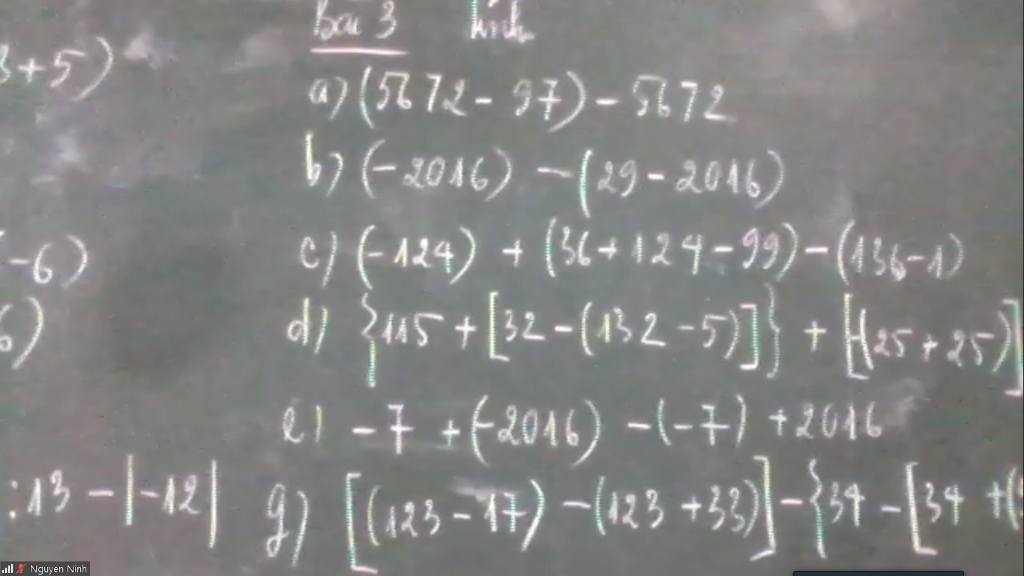 Bài 3 Tính
3+5)
a) (5672 - 97) - 5672
b) (-2016) - (29 - 2016)
-6)
c) (-124) + (36+124-99) - (136-1)
6)
d) {115 + [32 - (132 - 5)]} + [-(25 + 25)]
e) -7 + (-2016) - (-7) + 2016
:13 - |-12|
g) [(123 - 17) - (123 + 33)] - {34 - [34 + (
Nguyen Ninh